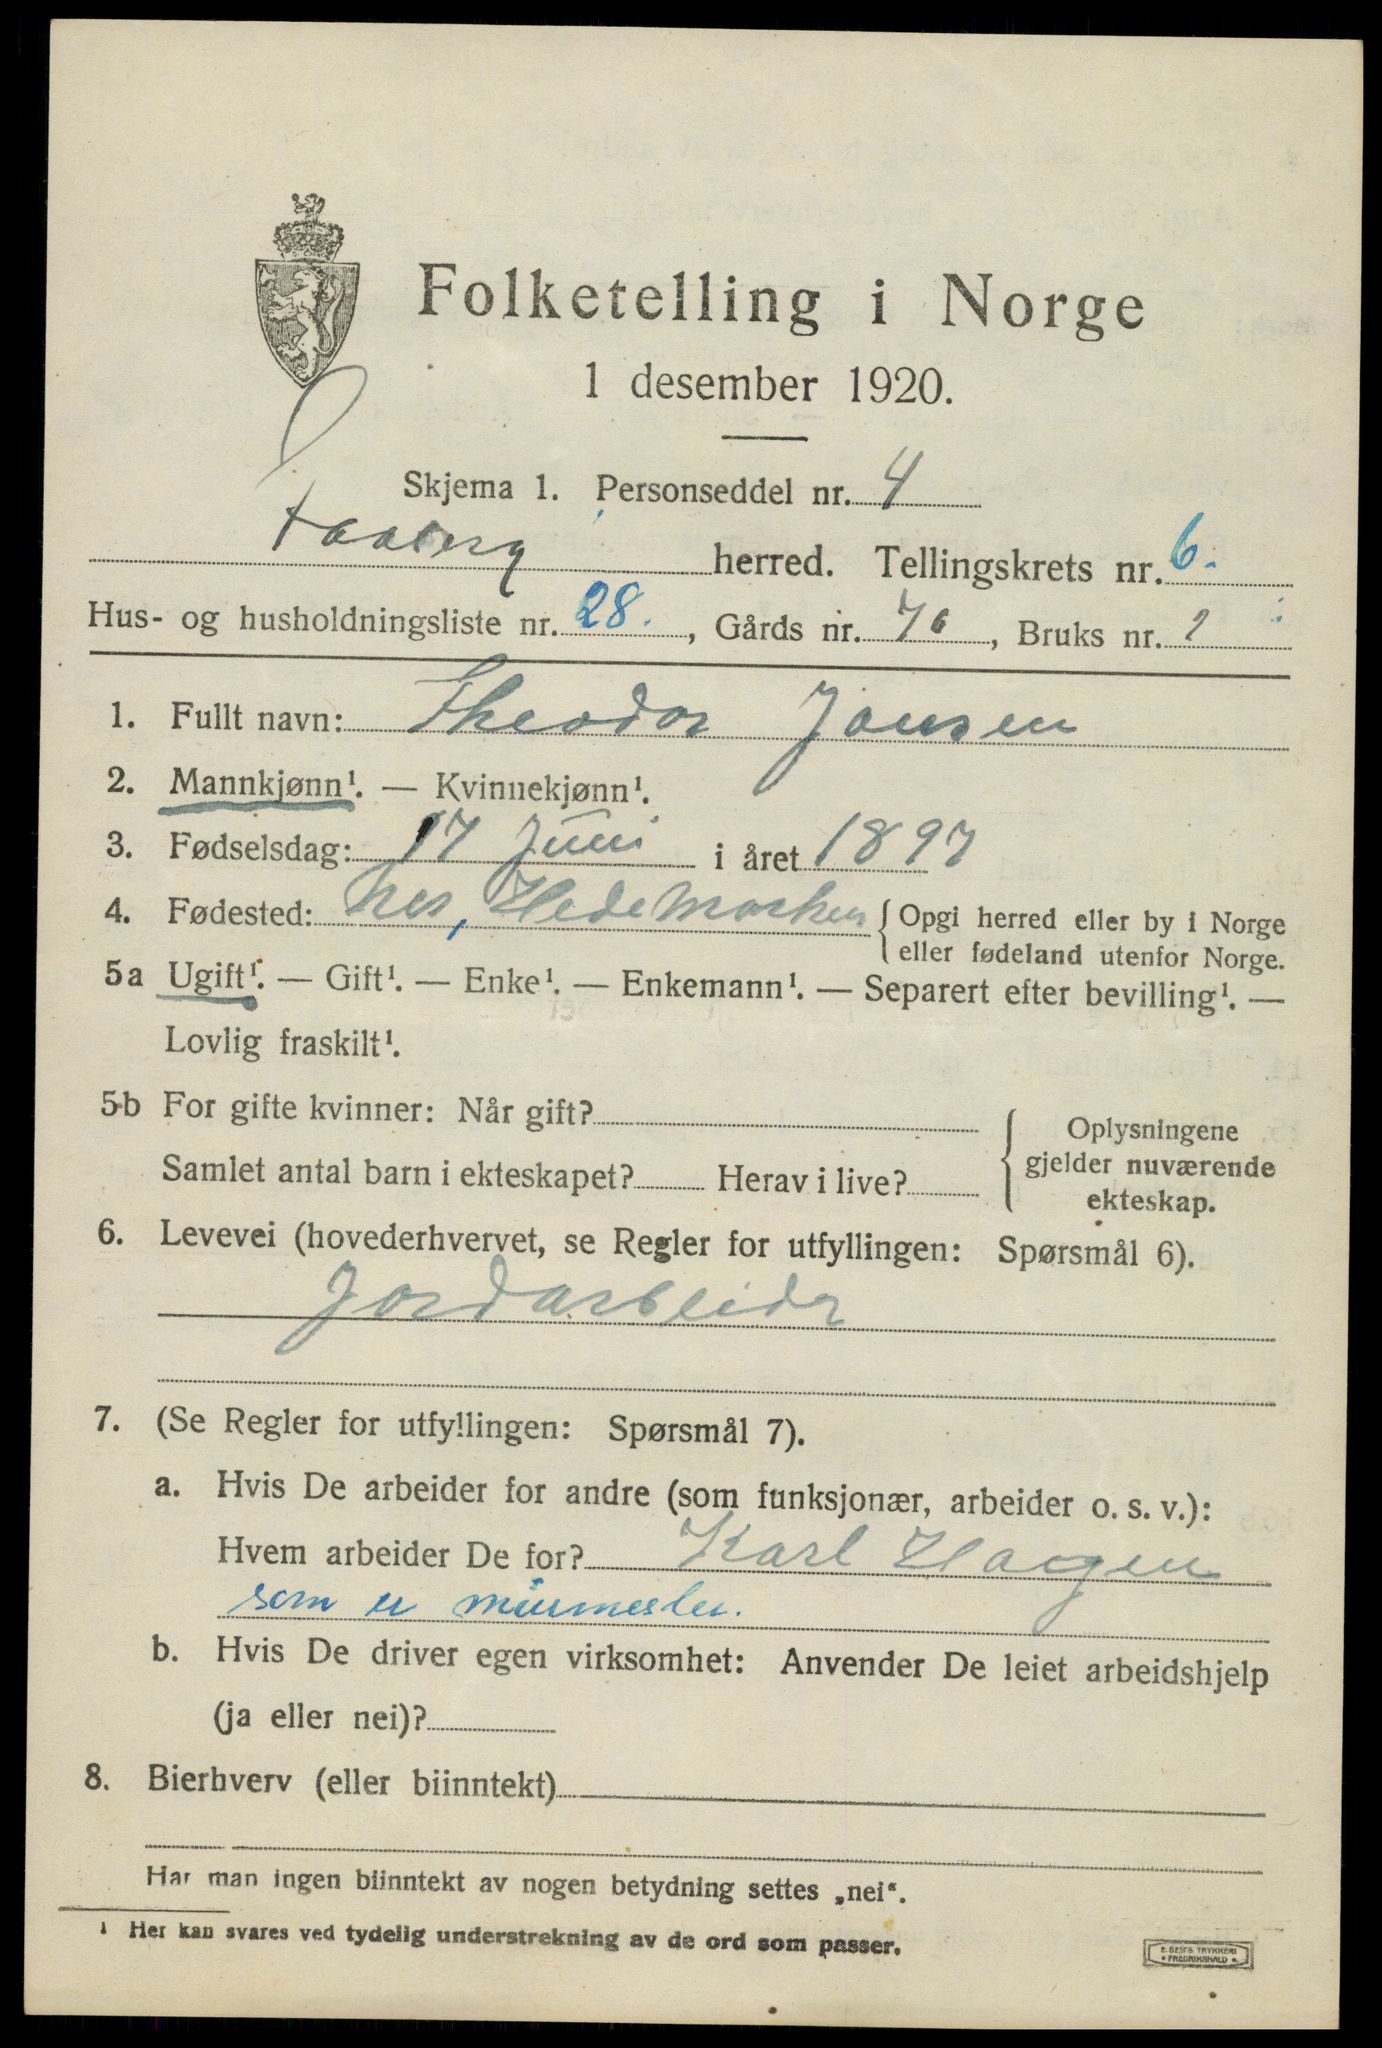 Folketelling i Norge
1 desember 1920.
Skjema 1. Personseddel nr. 4
Faaberg herred. Tellingskrets nr. 6.
Hus- og husholdningsliste nr. 28., Gårds nr. 76, Bruks nr. 1
1. Fullt navn: Theodor Jansen
2. Mannkjønn¹. — Kvinnekjønn¹.
3. Fødselsdag: 17 Juni i året 1897
4. Fødested: Nes, Hedemarken { Opgi herred eller by i Norge
eller fødeland utenfor Norge.
5a Ugift¹. — Gift¹. — Enke¹. — Enkemann¹. — Separert efter bevilling¹. —
Lovlig fraskilt¹.
5b For gifte kvinner: Når gift?
Samlet antal barn i ekteskapet? Herav i live?
Oplysningene
gjelder nuværende
ekteskap.
6. Levevei (hovederhvervet, se Regler for utfyllingen: Spørsmål 6).
Jordarbeider
7. (Se Regler for utfyllingen: Spørsmål 7).
a. Hvis De arbeider for andre (som funksjonær, arbeider o. s. v.):
Hvem arbeider De for? Karl Hagen
som er murmester.
b. Hvis De driver egen virksomhet: Anvender De leiet arbeidshjelp
(ja eller nei)?
8. Bierhverv (eller biinntekt)
Har man ingen biinntekt av nogen betydning settes „nei“.
¹ Her kan svares ved tydelig understrekning av de ord som passer.
E. SEM'S TRYKKERI
• FREDRIKSHALD •